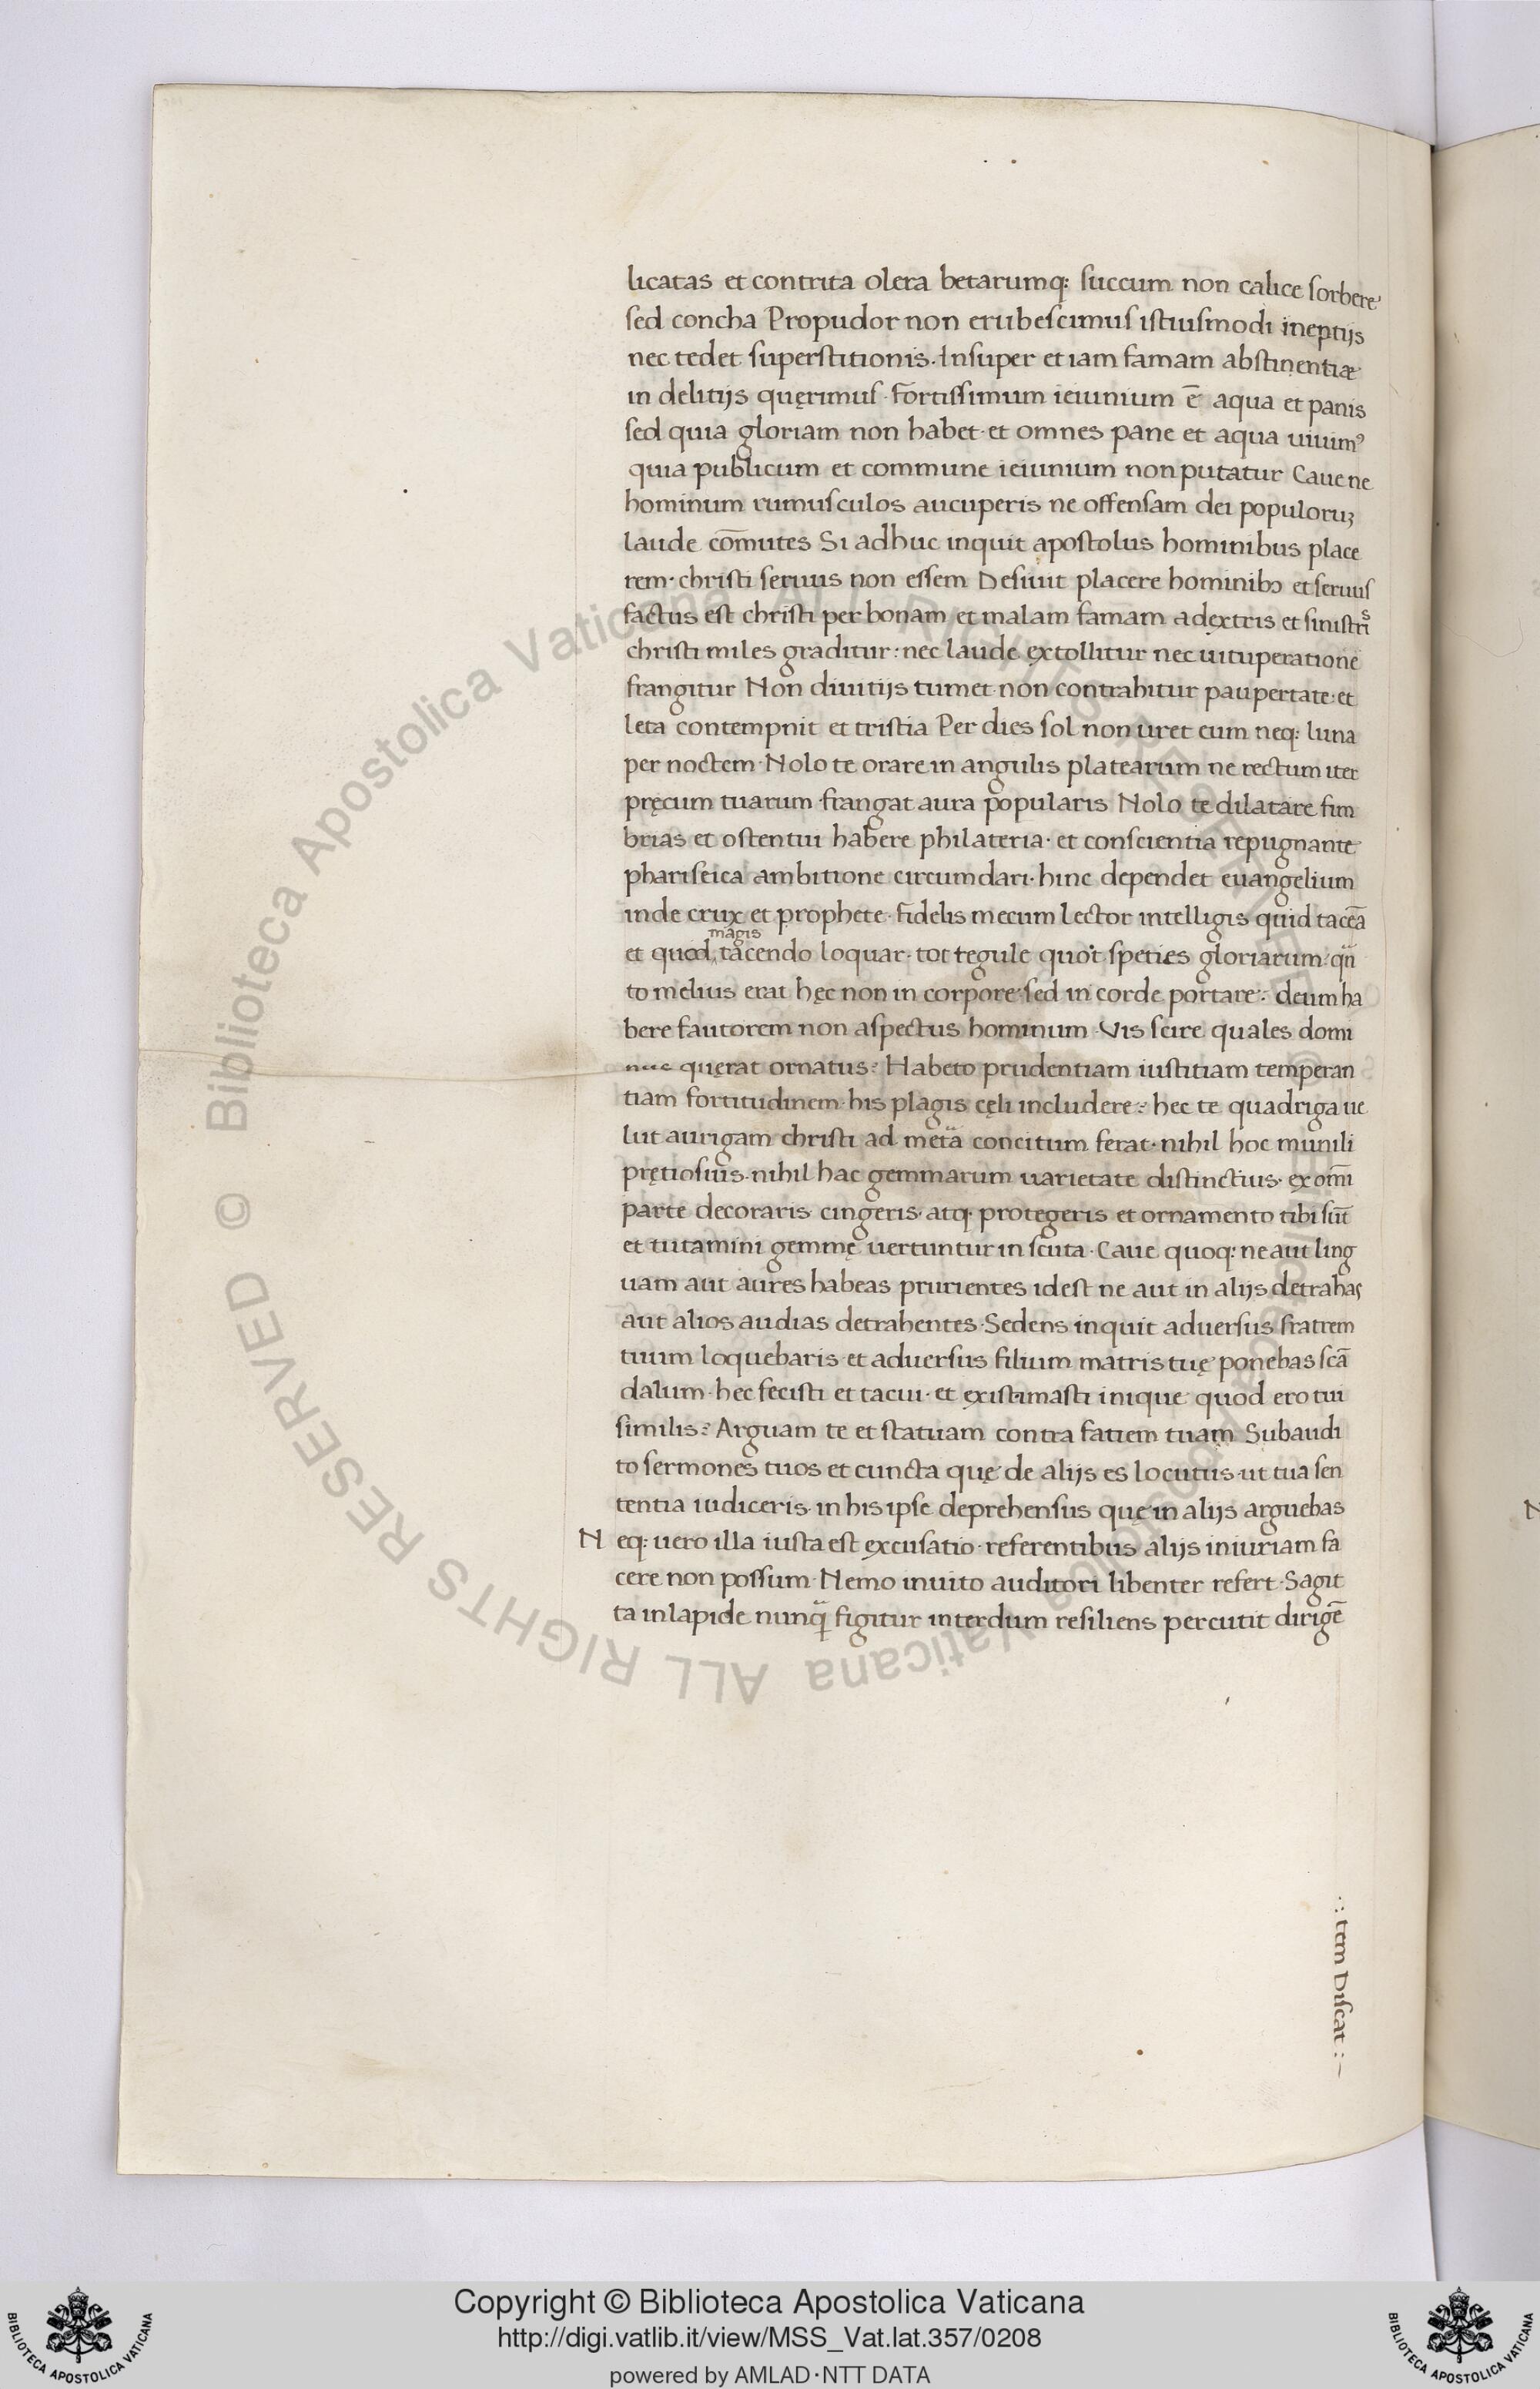 licatas et contrita olera betarumq: succum non calice sorbere
sed concha Propudor non erubescimus istiusmodi ineptijs
nec tedet superstitionis. Insuper etiam famam abstinentiæ
in delitijs quęrimus. Fortissimum ieiunium ē aqua et panis
sed quia gloriam non habet. et omnes pane et aqua uiuimꝰ
quia publicum et commune ieiunium non putatur Caue ne
hominum rumusculos aucuperis ne offensam dei populoruꝫ
laude com̄utes Si adhuc inquit apostolus hominibus place
rem. christi seruus non essem Desiuit placere hominibꝫ et seruus
factus est christi per bonam et malam famam adextris et sinistrˢi
christi miles graditur: nec laude extollitur nec uituperatione
frangitur Non diuitijs tumet non contrahitur paupertate. et
leta contempnit et tristia Per dies sol non uret eum neq: luna
per noctem. Nolo te orare in angulis platearum ne rectum iter
pręcum tuarum frangat aura popularis Nolo te dilatare fim
brias et ostentui habere philateria. et conscientia repugnante
phariseica ambitione circumdari. hinc dependet euangelium
inde crux et prophete. Fidelis mecum lector intelligis quid taceā
magis
et quod tacendo loquar. tot tegule quot speties gloriarum. qūn
to melius erat hęc non in corpore. sed in corde portare: deum ha
bere fautorem non aspectus hominum. Vis scire quales domi
nus quęrat ornatus: Habeto prudentiam iustitiam temperan
tiam fortitudinem. his plagis cęli includere: hec te quadriga ue
lut aurigam christi ad metā concitum ferat. nihil hoc munili
pretiosius. nihil hac gemmarum uarietate distinctius. ex om̄i
parte decoraris cingeris. atq. protegeris et ornamento tibi sūt
et tutamini gemmę uertuntur in scuta. Caue quoq: ne aut ling
uam aut aures habeas prurientes idest ne aut in alijs detrahas
aut alios audias detrahentes. Sedens inquit aduersus fratrem
tuum loquebaris. et aduersus filium matris tuę ponebas scā
dalum. hec fecisti et tacui. et existimasti inique quod ero tui
similis: Arguam te et statuam contra fatiem tuam Subaudi
to sermones tuos et cuncta quę de alijs es locutus. ut tua sen
tentia iudiceris. in his ipse deprehensus quę in alijs arguebas
N eq: uero illa iusta est excusatio. referentibus alijs iniuriam fa
cere non possum. Nemo inuito auditori libenter refert. Sagit
ta in lapide nunq̄ figitur interdum resiliens percutit dirigē
.: tem Discat :~
© Biblioteca Apostolica Vaticana ALL RIGHTS RESERVED © Biblioteca Apostolica Vaticana ALL RIGHTS RESERVED
Copyright © Biblioteca Apostolica Vaticana
http://digi.vatlib.it/view/MSS_Vat.lat.357/0208
powered by AMLAD·NTT DATA
BIBLIOTECA APOSTOLICA VATICANA
BIBLIOTECA APOSTOLICA VATICANA